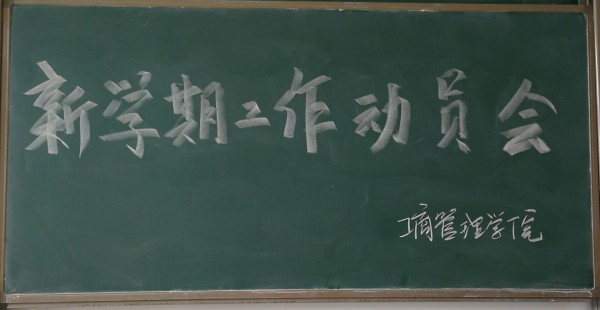 新学期工作动员会
工商管理学院